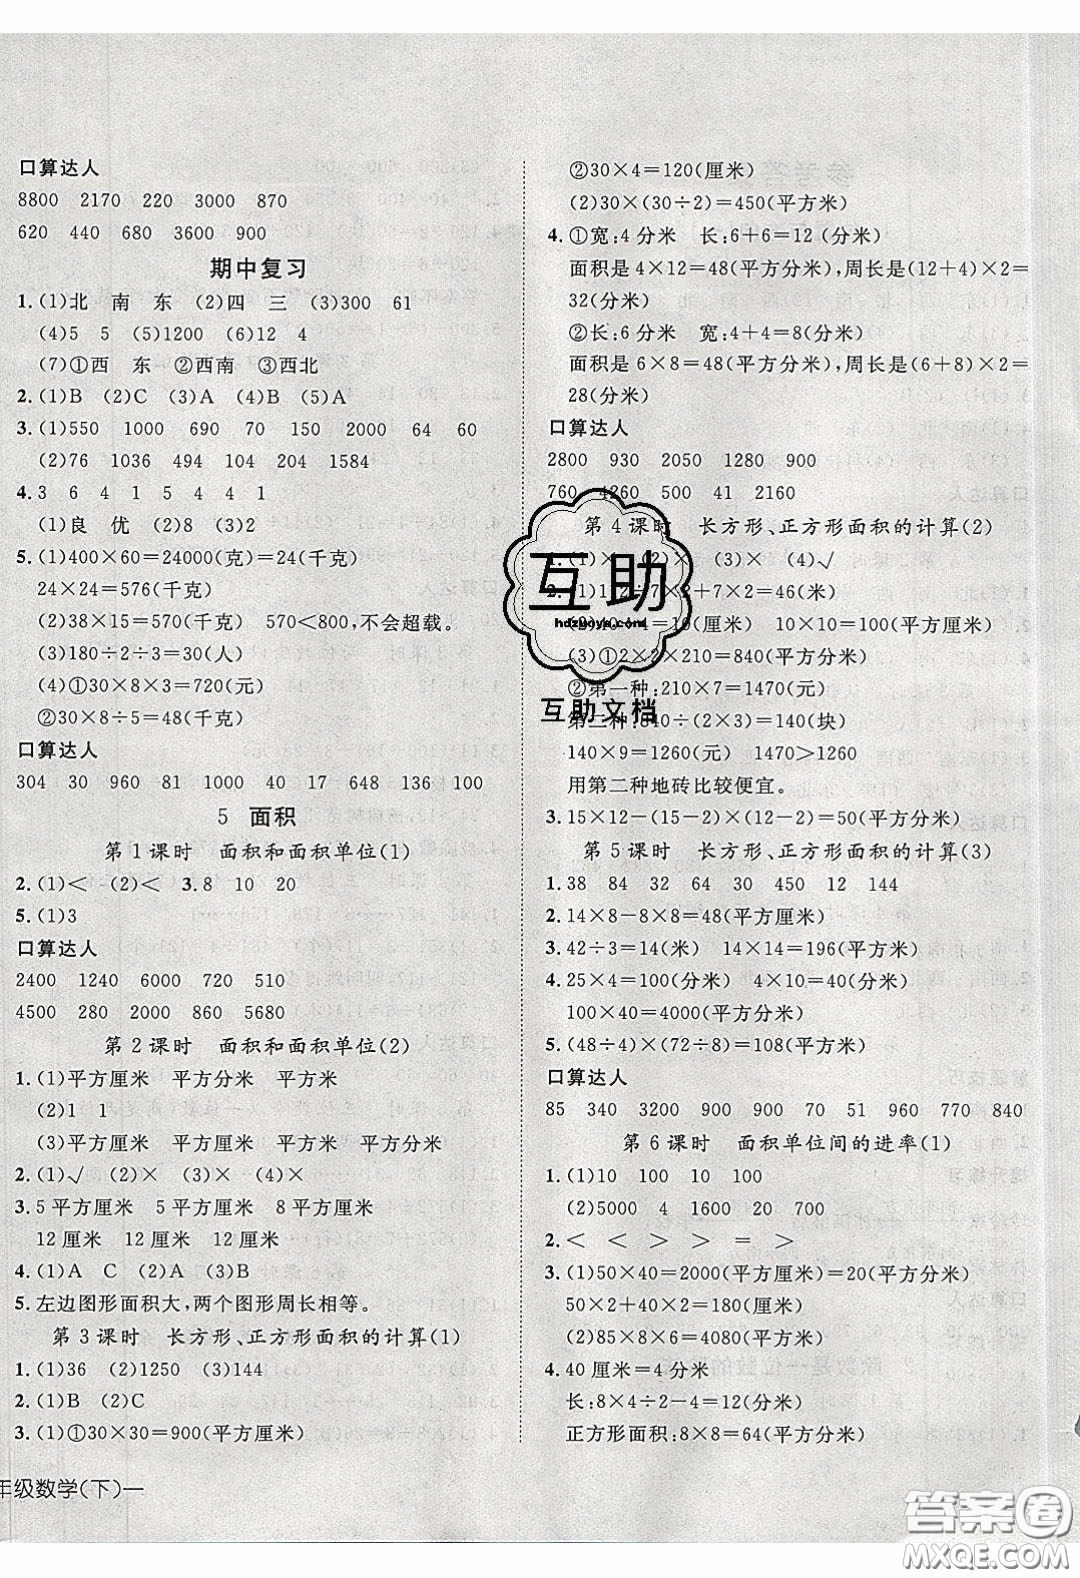 口算达人
8800 2170 220 3000 870
620 440 680 3600 900
期中复习
1.(1)北 南 东 (2)四 三 (3)300 61
(4)5 5 (5)1200 (6)12 4
(7)①西 东 ②西南 ③西北
2.(1)B (2)C (3)A (4)B (5)A
3.(1)550 1000 690 70 150 2000 64 60
(2)76 1036 494 104 204 1584
4.3 6 4 1 5 4 4 1
(1)良 优 (2)8 (3)2
5.(1)400×60=24000(克)=24(千克)
24×24=576(千克)
(2)38×15=570(千克) 570<800,不会超载。
(3)180÷2÷3=30(人)
(4)①30×8×3=720(元)
②30×8÷5=48(元)
口算达人
304 30 960 81 1000 40 17 648 136 100
5 面积
第1课时 面积和面积单位(1)
2.(1)< (2)< 3.8 10 20
5.(1)3
口算达人
2400 1240 6000 720 510
4500 280 2000 860 5680
第2课时 面积和面积单位(2)
1.(1)平方厘米 平方分米 平方米
(2)1 1
(3)平方厘米 平方厘米 平方米 平方分米
2.(1)√ (2)× (3)× (4)×
3.5平方厘米 5平方厘米 8平方厘米
12厘米 12厘米 12厘米
4.(1)A C (2)A (3)B
5.左边图形面积大,两个图形周长相等。
第3课时 长方形、正方形面积的计算(1)
1.(1)36 (2)1250 (3)144
2.(1)B (2)C
3.(1)①30×30=900(平方厘米)
年级数学(下)一
②30×4=120(厘米)
(2)30×(30÷2)=450(平方米)
4.①宽:4分米 长:6+6=12(分米)
面积是4×12=48(平方分米),周长是(12+4)×2=
32(分米)
②长:6分米 宽:4+4=8(分米)
面积是6×8=48(平方分米),周长是(6+8)×2=
28(分米)
口算达人
2800 930 2050 1280 900
760 4260 500 41 2160
第4课时 长方形、正方形面积的计算(2)
1.(1)× (2)× (3)× (4)√
2.(1)112÷7×2+7×2=46(米)
(2)40÷4=10(厘米) 10×10=100(平方厘米)
(3)①2×2×210=840(平方分米)
②第一种:210×7=1470(元)
第二种:840÷(2×3)=140(块)
140×9=1260(元) 1470>1260
用第二种地砖比较便宜。
3.15×12-(15-2)×(12-2)=50(平方分米)
第5课时 长方形、正方形面积的计算(3)
1.38 84 32 64 30 50 12 144
2.14×8-8×8=48(平方厘米)
3.42÷3=14(米) 14×14=196(平方米)
4.25×4=100(分米) 4×10=40(分米)
100×40=4000(平方分米)
5.(48÷4)×(72÷8)=108(平方米)
口算达人
85 340 3200 900 900 70 51 960 770 840
第6课时 面积单位间的进率(1)
1.(1)10 100 10 100
(2)5000 4 1600 20 700
2.< < > > = >
3.(1)50×40=2000(平方厘米)=20(平方分米)
50×2+40×2=180(厘米)
(2)85×8×6=4080(平方分米)
4.40厘米=4分米
长:8×4÷2-4=12(分米)
正方形面积:8×8=64(平方分米)
互助
hdzuoye.com
互助文档
答案圈
MXQE.COM